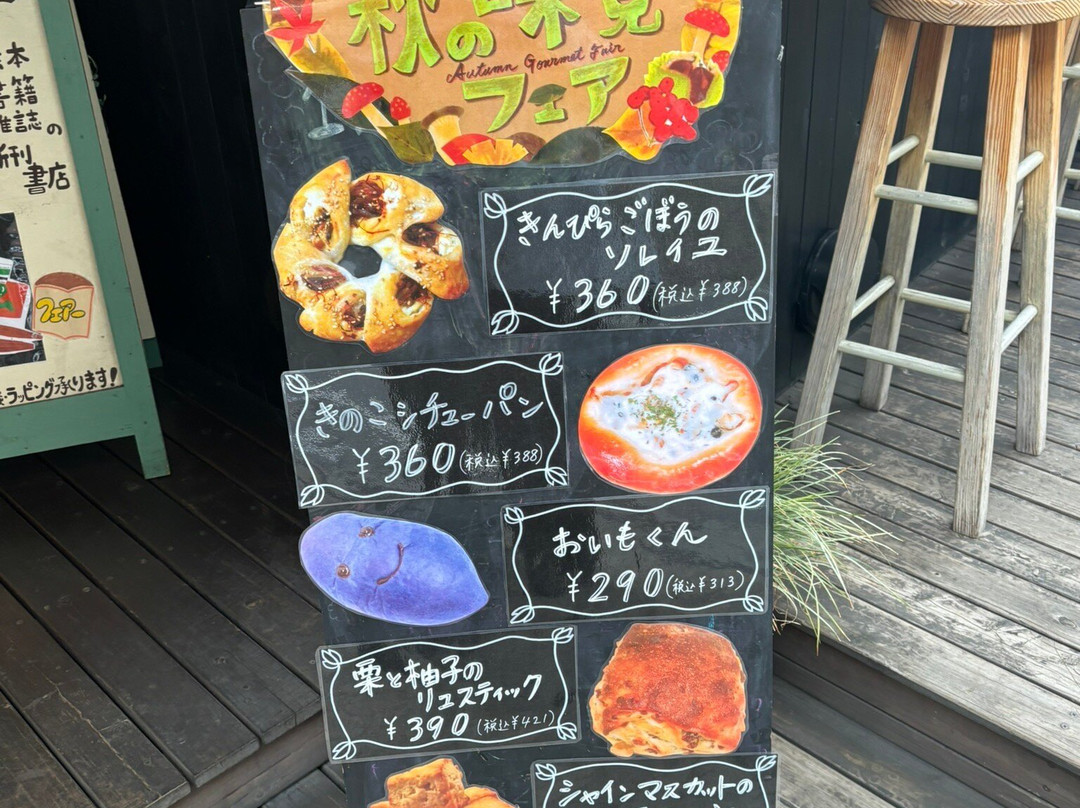 秋の味覚
Autumn Gourmet Fair
フェア
きんぴらごぼうの
ソレイユ
¥360(税込¥388)
きのこシチューパン
¥360(税込¥388)
おいもくん
¥290(税込¥313)
栗と柚子の
リュスティック
¥390(税込¥421)
シャインマスカットの
本
書籍
雑誌の
新刊
書店
フェアー
ラッピング承ります!